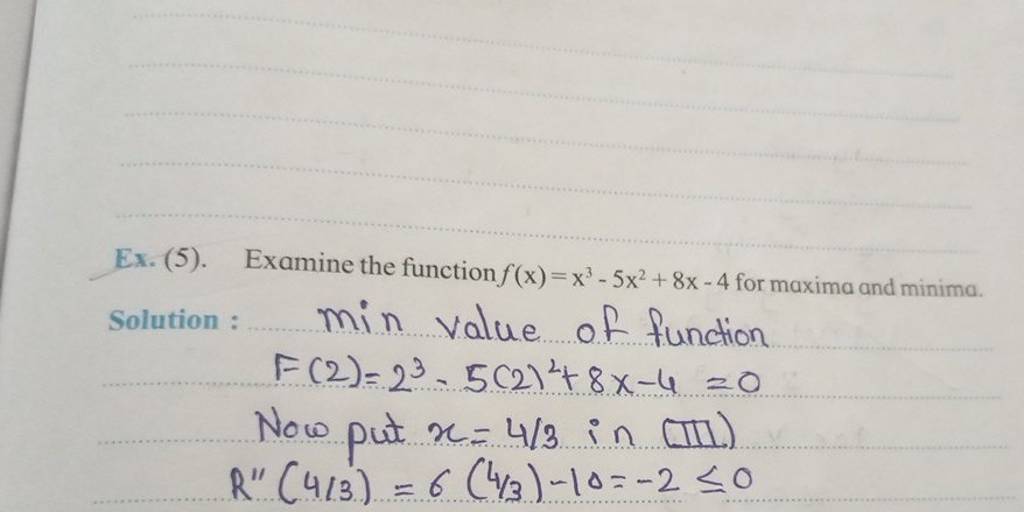 Ex. (5). Examine the function f(x) = x³ - 5x² + 8x - 4 for maxima and minima.
Solution : min value of function
F(2) = 2³ - 5(2)² + 8x - 4 = 0
Now put x = 4/3 in (III)
R" (4/3) = 6 (4/3) - 10 = -2 ≤ 0